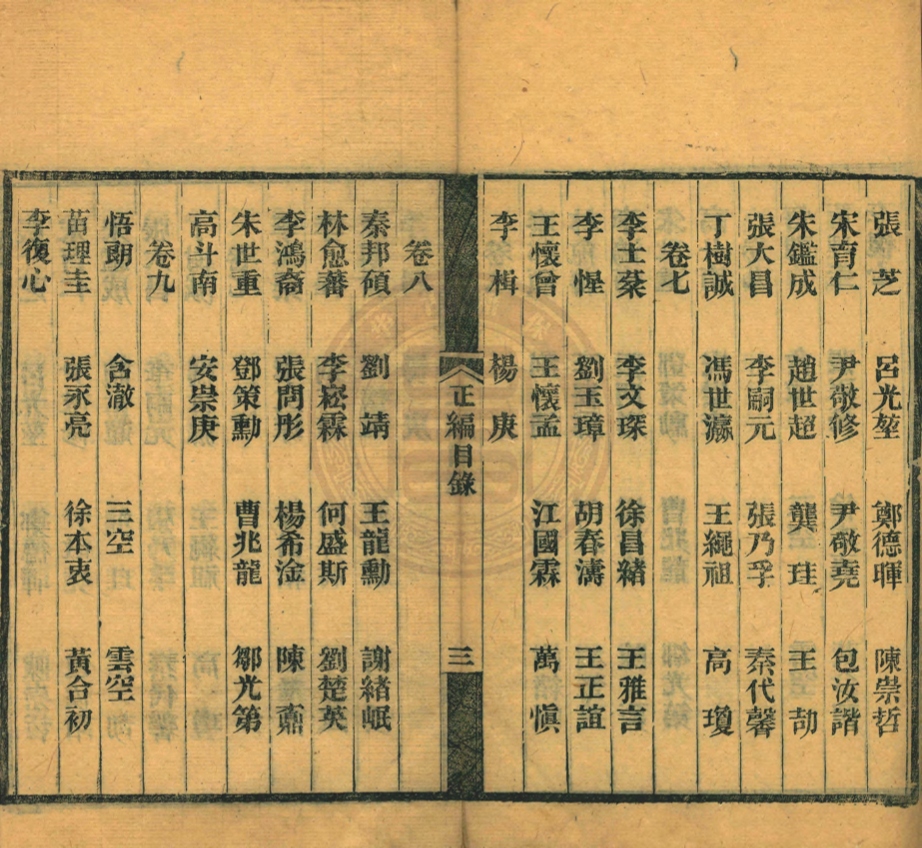 張芝 呂光堃 鄭德暉 陳崇哲
宋育仁 尹敬修 尹敬堯 包汝諧
朱鑑成 趙世超 龔珪 王劼
張大昌 李嗣元 張乃孚 秦代馨
丁樹誠 馮世瀛 王繩祖 高瓊
卷七
李士棻 李文琛 徐昌緒 王雅言
李惺 劉玉璋 胡春濤 王正誼
王懷曾 王懷孟 江國霖 萬慎
李楫 楊庚
正編目錄 三
卷八
秦邦碩 劉靖 王龍勳 謝緒岷
林愈蕃 李崧霖 何盛斯 劉楚英
李鴻裔 張問彤 楊希淦 陳鼐
朱世重 鄧策勳 曹兆龍 鄒光第
高斗南 安崇庚
卷九
悟朗 含澈 三空 雲空
苗理圭 張永亮 徐本衷 黃合初
李復心